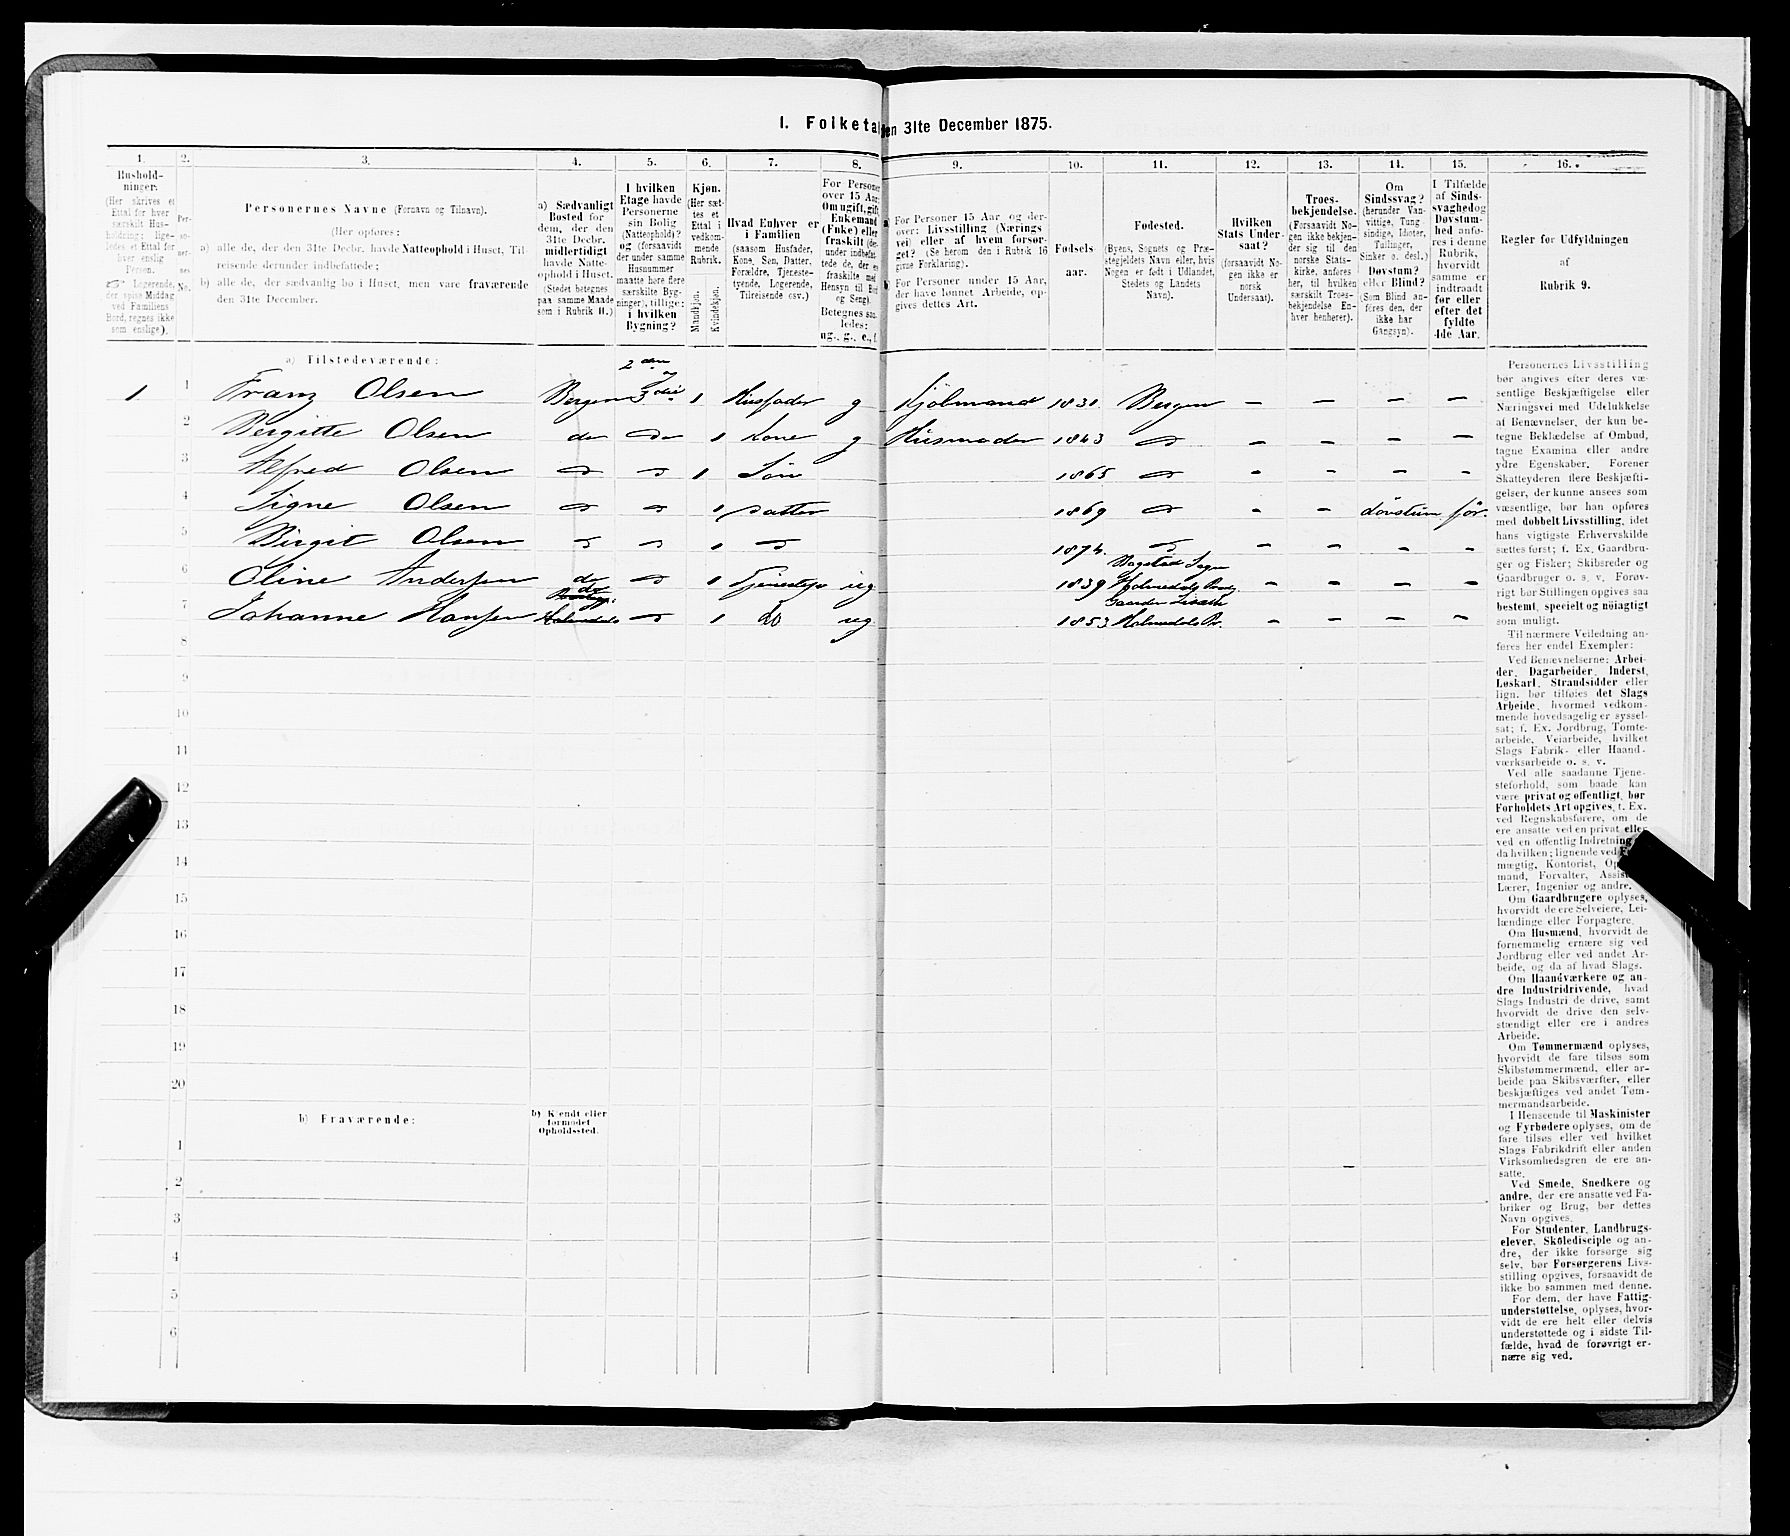 1. Folketal den 31te December 1875.
1.
2.
3.
4.
5.
6.
7.
8.
9.
10.
11.
12.
13.
14.
15.
16.
Hushold-
ninger.
(Her skrives et
Ettal for hver
særskilt Hus-
holdning; lige-
ledes et Ettal for
hver enslig
Person.
Logerende,
der spise Middag
ved Familiens
Bord, regnes ikke
som enslige).
Per-
so-
ner-
nes
No.
Personernes Navne (Fornavn og Tilnavn).
(Her opføres:
a) alle de, der den 31te Decbr. havde Natteophold i Huset, Til-
reisende derunder indbefattede;
b) alle de, der sædvanlig bo i Huset, men vare fraværende
den 31te December.
a) Sædvanligt
Bosted for
dem, der den
31te Decbr.
midlertidigt
havde Natte-
ophold i Huset.
(Stedet betegnes
paa samme Maade
som i Rubrik 11.)
I hvilken
Etage havde
Personerne
sin Bolig
(Natteophold)?
og (forsaavidt
der under samme
Husnummer
maatte høre flere
særskilte Byg-
ninger), tillige:
i hvilken
Bygning?
Kjøn.
(Her sæt-
tes et
Ettal i
vedkom-
mende
Rubrik.
Mandkjøn.
Kvindekjøn.
Hvad Enhver er
i Familien
(saasom Husfader,
Kone, Søn, Datter,
Forældre, Tjeneste-
tyende, Logerende,
Tilreisende osv.)
For Personer
over 15 Aar:
Om ugift, gift,
Enkemand
(Enke) eller
fraskilt (de-
under indbefat-
tede de, der er
fraskilte med
Hensyn til Bord
og Seng).
Betegnes saa-
ledes:
ug., g., e., f.
a) For Personer 15 Aar og der-
over: Livsstilling (Nærings-
vei) eller af hvem forsør-
get? (Se herom den i Rubrik 16
givne Forklaring).
b) For Personer under 15 Aar,
der have lønnet Arbeide, op-
gives dettes Art.
Fødsels-
aar.
Fødested.
(Byens, Sognets og Præ-
stegjeldets Navn eller, hvis
Nogen er født i Udlandet,
Stedets og Landets
Navn).
Hvilken
Stats Under-
saat?
(forsaavidt No-
gen ikke er
norsk
Undersaat).
Troes-
bekjendelse.
(Forsaavidt No-
gen ikke bekjen-
der sig til den
norske Stats-
kirke, anføres
her, til hvilken
særskilt Troes-
bekjendelse En-
hver henhører).
Om
Sindssvag?
(herunder Van-
vittige, Tung-
sindige, Idioter,
Tullinger,
Sinker o. desl.)
Døvstum?
eller Blind?
(Som Blind an-
føres den, der
ikke har
Gangsyn).
I Tilfælde
af Sinds-
svaghed og
Døvstum-
hed anfø-
res i denne
Rubrik,
hvorvidt
samme er
indtraadt
før eller
efter det
fyldte
4de Aar.
Regler for Udfyldningen
af
Rubrik 9.
a) Tilstedeværende:
2den og
1 1 Franz Olsen Bergen 3die 1 Husfader g Kjøbmand 1831. Bergen – – – –
2 Bergitte Olsen do do 1 Kone g Husmoder 1843 do – – – –
3 Alfred Olsen do do 1 Søn 1865 do - - - -
4 Signe Olsen do do 1 datter 1869 do - - døvstum før.
5 Birgit Olsen do do 1 do 1874. do – – – –
6 Oline Andersen do do 1 Tjenestep ug 1839
do
7 Johanne Hansen do 1 do ug 1853
8
9
10
11
12
13
14
15
16
17
18
19
20
b) Fraværende:
b) Kjendt eller
formodet
Opholdssted.
1
2
3
4
5
6
Personernes Livsstilling
bør angives efter deres væ-
sentlige Beskjæftigelse eller
Næringsvei med Udelukkelse
af Benævnelser, der kun be-
tegne Beklædelse af Ombud,
tagne Examina eller andre
ydre Egenskaber. Forener
Skatteyderen flere Beskjæfti-
gelser, der kunne ansees som
væsentlige, bør han opføres
med dobbelt Livsstilling, idet
hans vigtigste Erhvervskilde
sættes først; f. Ex. Gaardbru-
ger og Fisker; Skibsreder og
Gaardbruger o. s. v. Forøv-
rigt bør Stillingen opgives saa
bestemt, specielt og nøiagtigt
som muligt.
Til nærmere Veiledning an-
føres her endel Exempler:
Ved Benævnelserne: Arbei-
der, Dagarbeider, Inderst,
Løskarl, Strandsidder eller
lign. bør tilføies det Slags
Arbeide, hvormed vedkom-
mende hovedsagelig er syssel-
sat; f. Ex. Jordbrug, Tomte-
arbeide, Veiarbeide, hvilket
Slags Fabrik- eller Haand-
værksarbeide o. s. v.
Ved alle saadanne Tjene-
steforhold, som baade kan
være privat og offentligt, bør
Forholdets Art opgives, t. Ex.
ved Regnskabsførere, om de
ere ansatte ved en privat eller
ved en offentlig Indretning
da hvilken; lignende ved
mægtig, Kontorist, Op
mand, Forvalter, Assis
Lærer, Ingeniør og andre.
Om Gaardbrugere oplyses,
hvorvidt de ere Selveiere, Lei-
lændinge eller Forpagtere.
Om Husmænd, hvorvidt de
fornemmelig ernære sig ved
Jordbrug eller ved andet Ar-
beide, og da af hvad Slags.
Om Haandværkere og an-
dre Industridrivende, hvad
Slags Industri de drive, samt
hvorvidt de drive den selv-
stændigt eller ere i andres
Arbeide.
Om Tømmermænd oplyses,
hvorvidt de fare tilsøs som
Skibstømmermænd, eller ar-
beide paa Skibsværfter, eller
beskjæftiges ved andet Tøm-
mermandsarbeide.
I Henseende til Maskinister
og Fyrbødere oplyses, om de
fare tilsøs eller ved hvilket
Slags Fabrikdrift eller anden
Virksomhedsgren de ere an-
satte.
Ved Smede, Snedkere og
andre, der ere ansatte ved Fa-
briker og Brug, bør dettes
Navn opgives.
For Studenter, Landbrugs-
elever, Skoledisciple og an-
dre, der ikke forsørge sig
selv, bør Forsørgerens Livs-
stilling opgives, forsaavidt de
ikke bo sammen med denne.
For dem, der have Fattig-
understøttelse, oplyses, hvor-
vidt de ere helt eller delvis
understøttede og i sidste Til-
fælde, hvad de forøvrigt er-
nære sig ved.